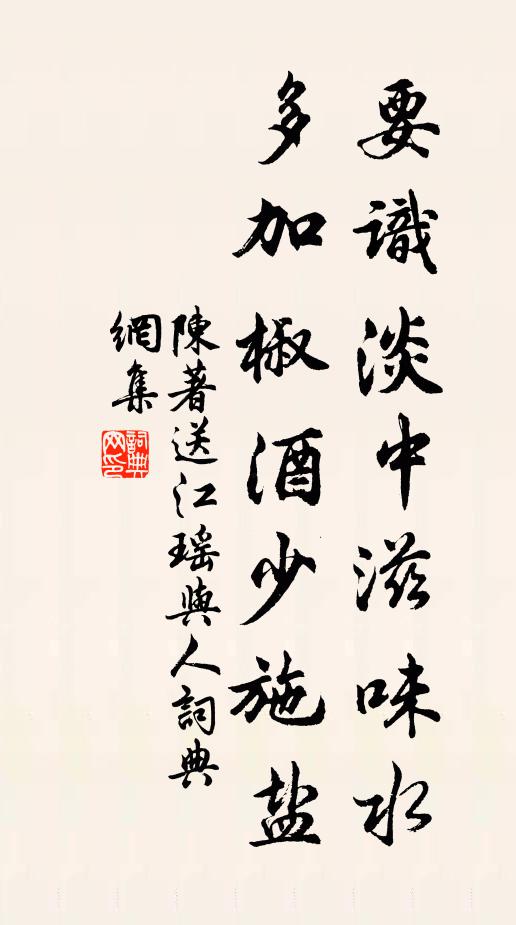 要識淡中滋味水
多加椒酒少施盐
陳著送江瑶與人詞典
網集
詞典
网印